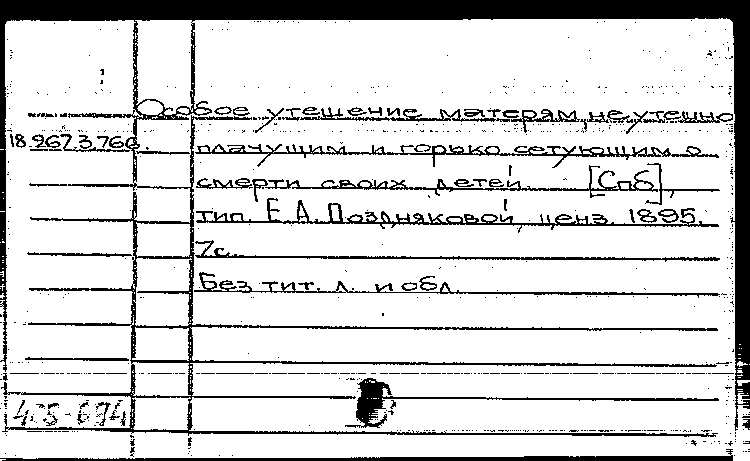 Особое утешение матерям, неутешно
18.967.3.766. плачущим и горько сетующим о
смерти своих детей. [Спб],
тип. Е.А. Поздняковой, ценз. 1895.
7с.
Без тит. л. и обл.
405-694